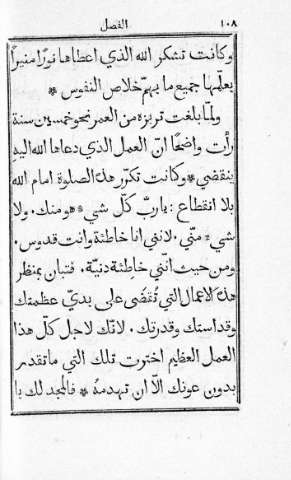 ١٠٨ الفصل
وكانت تشكر الله الذي اعطاها نورًا منيرًا
يعلّمها جميع ما يهمّ خلاص النفوس *
ولمّا بلغت تريزه من العمر نحو خمسين سنة
رأت واضحًا انّ العمل الذي دعاها الله اليه
ينقضي * وكانت تكرّر هذه الصلوة امام الله
بلا انقطاع : يا ربّ كلّ شيء هو منك . ولا
شيء منّي . لانني انا خاطئة وانت قدوس .
ومن حيث انّني خاطئة دنيّة . فتبان بمنظر
هذه الاعمال التي تُقضَى على يديّ عظمتك
وقداستك وقدرتك . لانّك لاجل كلّ هذا
العمل العظيم اخترت تلك التي ما تقدر
بدون عونك الّا ان تهدمهُ * فالمجد لك يا